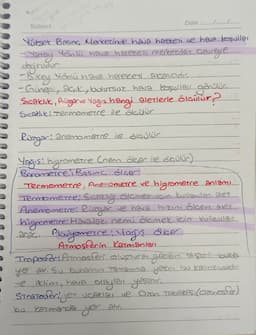 Subject Date
Yüksek Basınç Merkezinde hava hareketi ve hava koşulları
-Yatay Yönlü hava hareketi merkezden Çevreye
doğrudur
-Dikey Yönlü hava hareketi alçalıcıdır.
-Güneşli, açık, bulutsuz hava koşulları görülür.
Sıcaklık, Rüzgar ve Yağış hangi aletlerle ölçülür?
Sıcaklık: Termometre ile ölçülür
Rüzgar: anemometre ile ölçülür
Yağış: higrometre (nem ölçer ile ölçülür)
Barometre: Basınç ölçer
Termometre, Anemometre ve higrometre anlamı
Termometre: Sıcaklığı ölçmek için kullanılan alet
Anemometre: Rüzgar ve hava hızını ölçen alet
higrometre: Havadaki nemi ölçmek için kullanılan
araç. Plüvyometre: Yağış ölçer
Atmosferin Katmanları
Troposfer: Atmosferi oluşturan gazların
yer alır. Su buharının tamamına yakını bu katmandadır
ve iklim, hava olayları yaşanır.
Stratosfer: jet uçakları ve Ozon tabakası
bu katmanda yer alır.